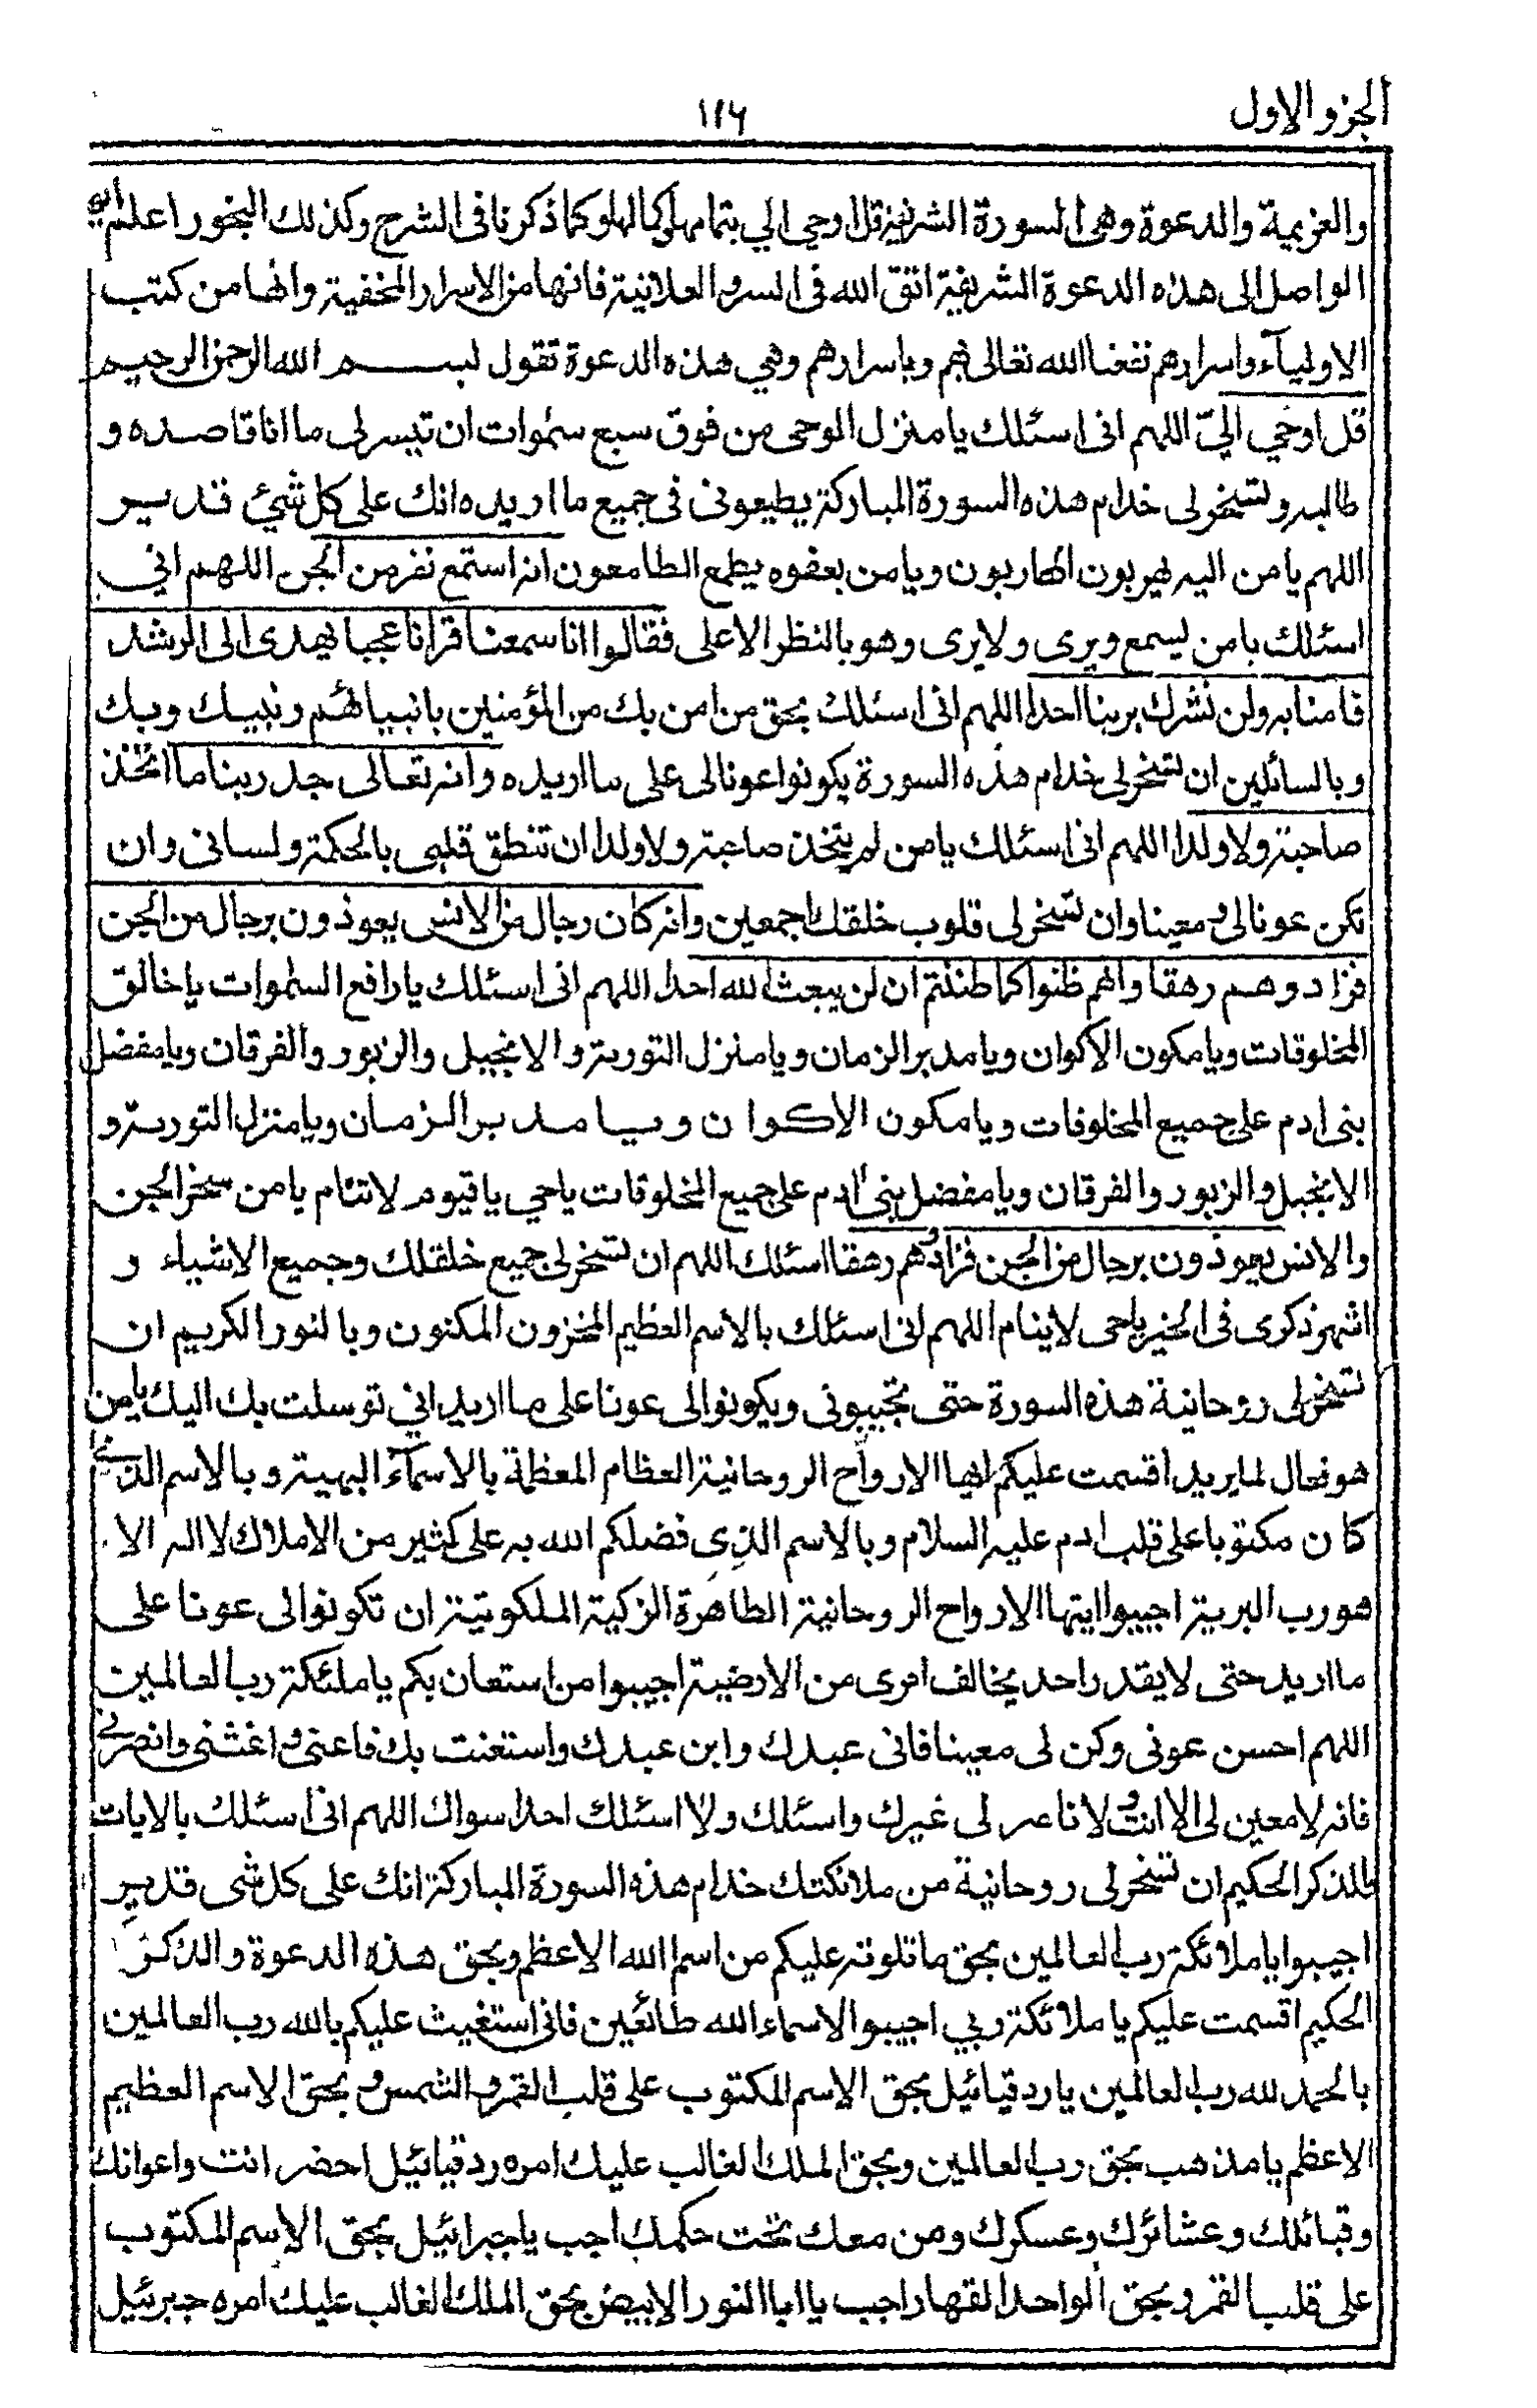 الجزو الاول
١١٦
والعزيمة والدعوة وهى السورة الشريفة قل اوحى الي بتمامها وكمالها وكما ذكرنا فى الشرح وكذلك البخور اعلم ايها
الواصل الى هذه الدعوة الشريفة اتق الله فى السر والعلانية فانها من الاسرار المخفية وانها من كتب
الاوليآء واسرارهم نفعنا الله تعالى بهم وباسرارهم وهي هذه الدعوة تقول بسم الله الرحمن الرحيم
قل اوحي اليّ اللهم انى اسئلك يا منزل الوحى من فوق سبع سموات ان تيسر لى ما انا قاصده و
طالبه وتسخر لى خدام هذه السورة المباركة يطيعونى فى جميع ما اريده انك على كل شئ قدير
اللهم يا من اليه يهربون الهاربون ويا من بعفوه يطمع الطامعون انه استمع نفر من الجن اللهم اني
اسئلك يا من يسمع ويرى ولا يرى وهو بالنظر الاعلى فقالوا انا سمعنا قرانا عجبا يهدى الى الرشد
فامنا به ولن نشرك بربنا احدا اللهم انى اسئلك بحق من امن بك من المؤمنين بانبيائهم ونبيك وبك
وبالسائلين ان تسخر لى خدام هذه السورة يكونوا عونا لى على ما اريده وانه تعالى جد ربنا ما اتخذ
صاحبة ولا ولدا اللهم انى اسئلك يا من لم يتخذ صاحبة ولا ولدا ان تنطق قلبى بالحكمة ولسانى وان
تكن عونا لى ومعينا وان تسخر لى قلوب خلقك اجمعين وانه كان رجال من الانس يعوذون برجال من الجن
فزادوهم رهقا وانهم ظنوا كما ظننتم ان لن يبعث الله احدا اللهم انى اسئلك يا رافع السموات يا خالق
المخلوقات ويا مكون الاكوان ويا مدبر الزمان ويا منزل التورية والانجيل والزبور والفرقان ويا مفضل
بنى ادم على جميع المخلوقات ويا مكون الاكوان ويا مدبر الزمان ويا منزل التورية و
الانجيل والزبور والفرقان ويا مفضل بنى ادم على جميع المخلوقات يا حي يا قيوم لا تنام يا من سخر الجن
والانس يعوذون برجال من الجن فزادوهم رهقا اسئلك اللهم ان تسخر لى جميع خلقك وجميع الاشياء و
اشهر ذكرى فى الخير يا حى لا ينام اللهم انى اسئلك بالاسم العظيم المخزون المكنون وبالنور الكريم ان
تسخر لى روحانية هذه السورة حتى تجيبونى ويكونوا لى عونا على ما اريد اني توسلت بك اليك يا من
هو فعال لما يريد اقسمت عليكم ايها الارواح الروحانية العظام المعظمة بالاسمآء البهية وبالاسم الذي
كان مكتوبا على قلب ادم عليه السلام وبالاسم الذي فضلكم الله به على كثير من الاملاك لا اله الا
هو رب البرية اجيبوا ايتها الارواح الروحانية الطاهرة الزكية الملكوتية ان تكونوا لى عونا على
ما اريد حتى لا يقدر احد يخالف امرى من الارضية اجيبوا من استعان بكم يا ملئكة رب العالمين
اللهم احسن عونى وكن لى معينا فانى عبدك وابن عبدك واستعنت بك فاعنى واغثنى وانصرني
فانه لا معين لى الا انت ولا ناصر لى غيرك واسئلك ولا اسئلك احدا سواك اللهم انى اسئلك بالايات
والذكر الحكيم ان تسخر لى روحانية من ملائكتك خدام هذه السورة المباركة انك على كل شى قدير
اجيبوا يا ملائكة رب العالمين بحق ما تلوته عليكم من اسم الله الاعظم وبحق هذه الدعوة والذكر
الحكيم اقسمت عليكم يا ملائكة ربي اجيبوا لاسماء الله طائعين فانى استغيث عليكم بالله رب العالمين
بالحمد لله رب العالمين يا ردقيائيل بحق الاسم المكتوب على قلب القمر والشمس وبحق الاسم العظيم
الاعظم يا مذهب بحق رب العالمين وبحق الملك الغالب عليك امره ردقيائيل احضر انت واعوانك
وقبائلك وعشائرك وعسكرك ومن معك تحت حكمك اجب يا جبرائيل بحق الاسم المكتوب
على قلب القمر وبحق الواحد القهار اجب يا ابا النور الابيض بحق الملك الغالب عليك امره جبرئيل